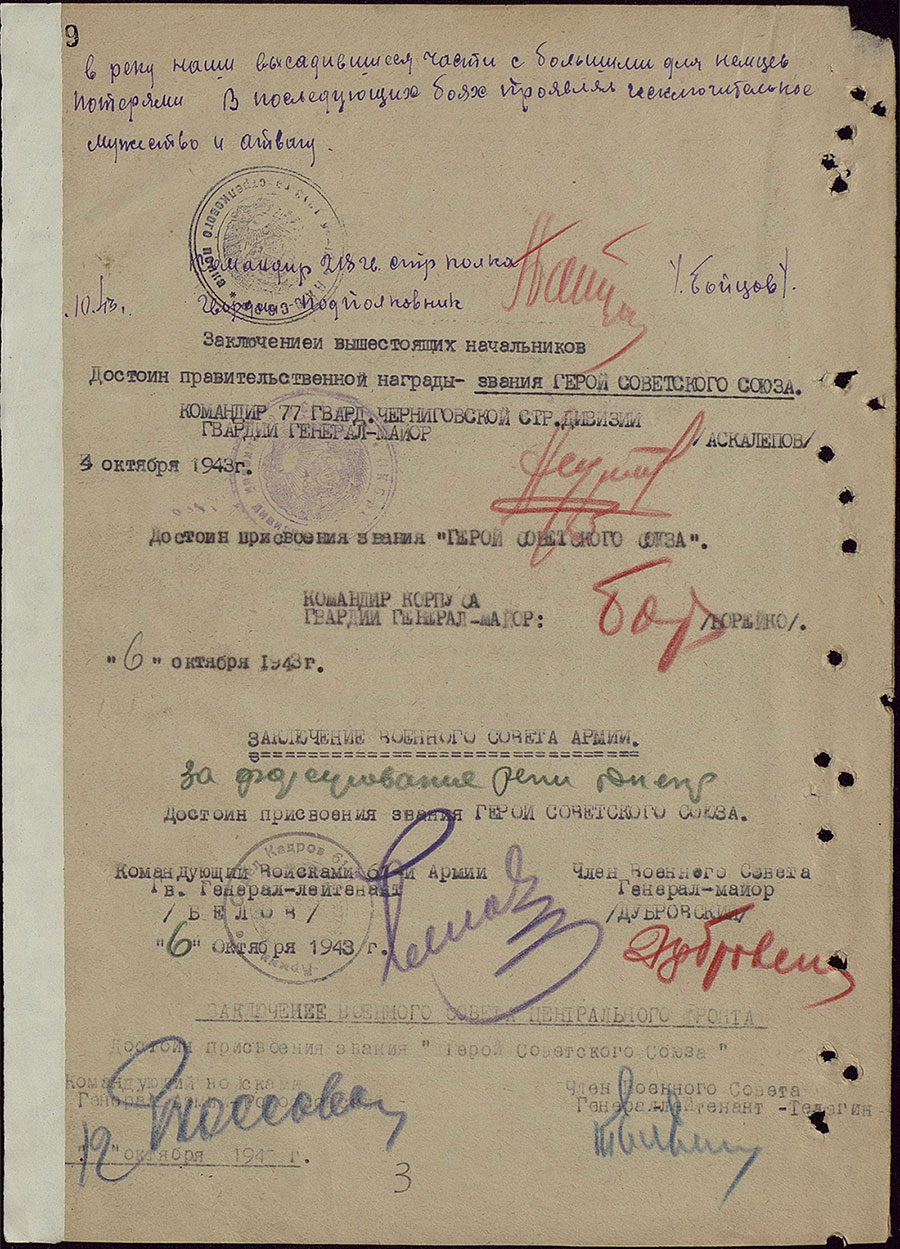 9
в реку наши высадившиеся части с большими для немцев
потерями В последующих боях проявлял исключительное
мужество и атвагу.
Командир 218 гв. стр полка
/Бойцов/.
.10.43г. Гвардии Подполковник
Заключениеи вышестоящих начальников
Достоин правительственной награды- звания ГЕРОЙ СОВЕТСКОГО СОЮЗА.
КОМАНДИР 77 ГВАРД.ЧЕРНИГОВСКОЙ СТР.ДИВИЗИИ
ГВАРДИИ ГЕНЕРАЛ-МАЙОР /АСКАЛЕПОВ/
октября 1943г.
Достоин присвоения звания "ГЕРОЙ СОВЕТСКОГО СОЮЗА".
КОМАНДИР КОРПУСА
ГВАРДИИ ГЕНЕРАЛ-МАЙОР: /БОРЕЙКО/.
"6" октября 1943г.
ЗАКЛЮЧЕНИЕ ВОЕННОГО СОВЕТА АРМИИ.
за форсирование реки Днепр
Достоин присвоения звания ГЕРОЙ СОВЕТСКОГО СОЮЗА.
Командующий Войсками 61й Армии Член Военного Совета
Гв. Генерал-лейтенант Генерал-майор
/БЕЛОВ/ /ДУБРОВСКИЙ/
"6" Октября 1943 г.
ЗАКЛЮЧЕНИЕ ВОЕННОГО СОВЕТА ЦЕНТРАЛЬНОГО ФРОНТА
Достоин присвоения звания "Герой Советского Союза"
Командующий войсками Член Военного Совета
Генерал Генерал-лейтенант -Телегин
"12" октября 1943 г.
3